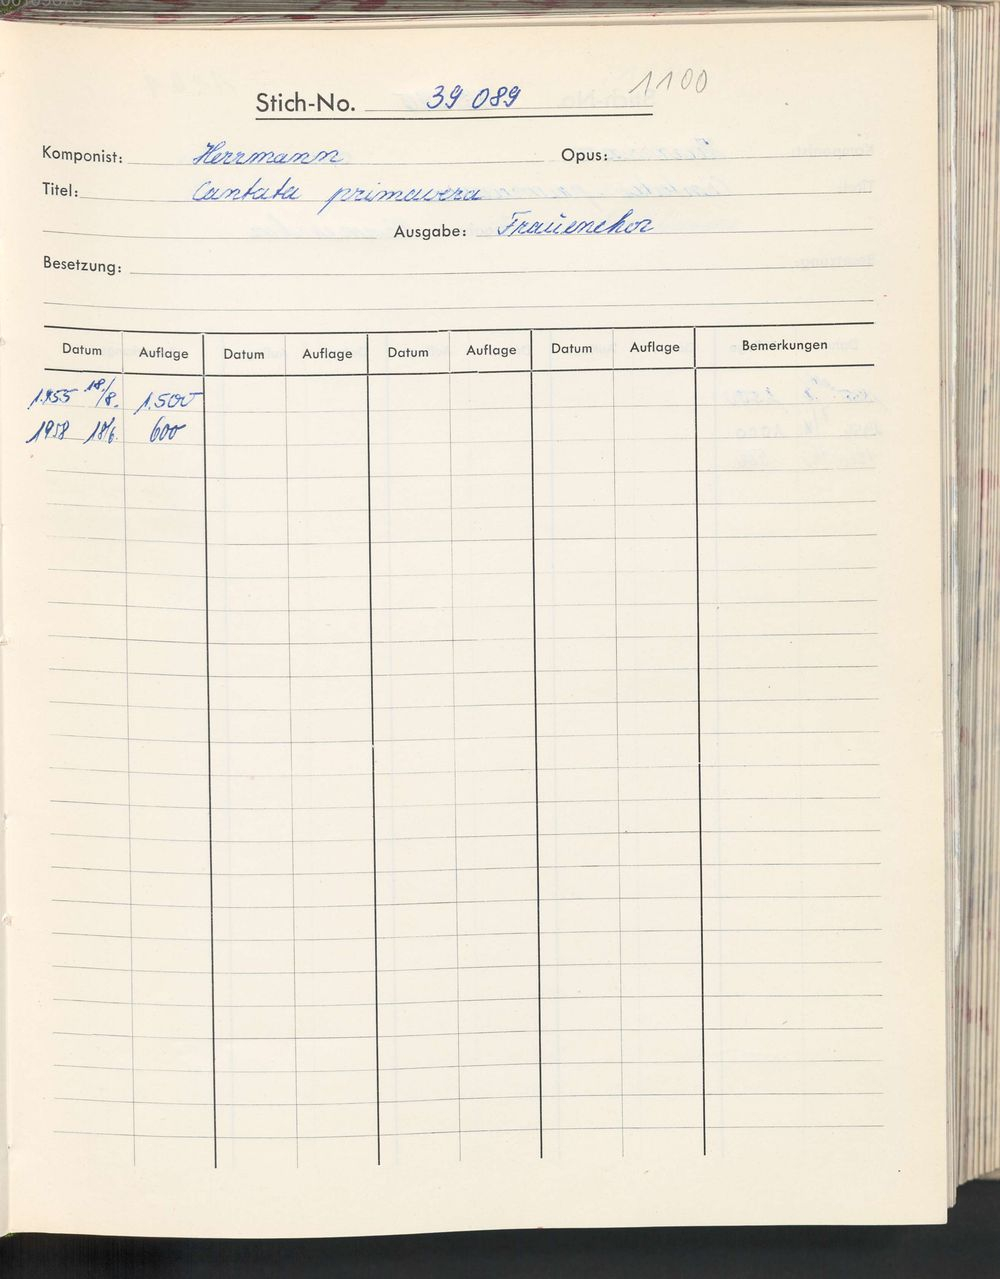 Stich-No. 39 089 1100
Komponist: Herrmann Opus:
Titel: Cantata primavera
Ausgabe: Frauenchor
Besetzung:
Datum Auflage Datum Auflage Datum Auflage Datum Auflage Bemerkungen
1955 18./8. 1.500
1958 18/6. 600